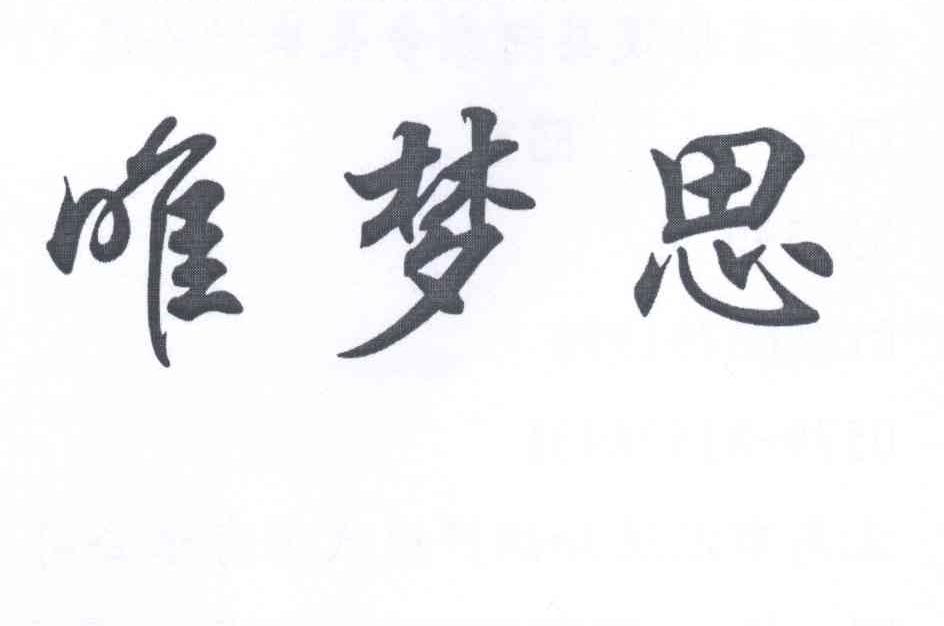 唯梦思